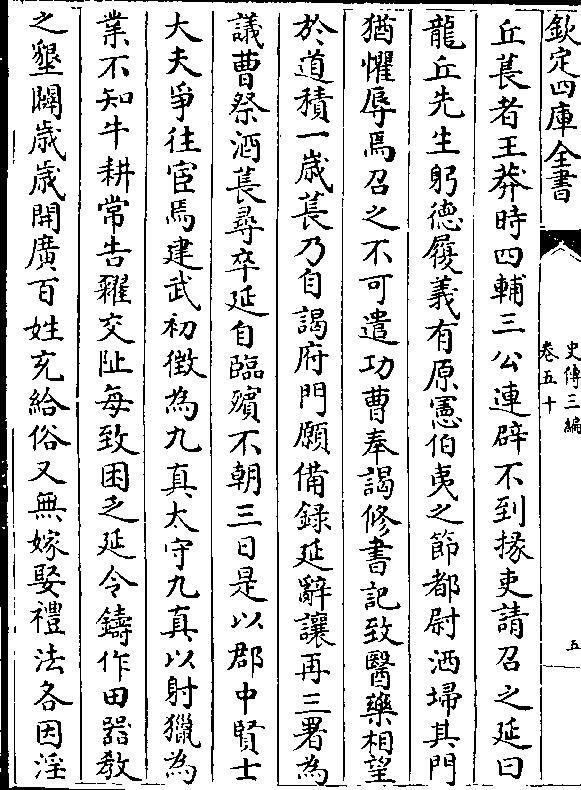 欽定四庫全書
史傳三編
卷五十
五
丘萇者王莽時四輔三公連辟不到掾吏請召之延曰
龍丘先生躬德履義有原憲伯夷之節都尉洒埽其門
猶懼辱焉召之不可遣功曹奉謁修書記致醫藥相望
於道積一歲萇乃自謁府門願備録延辭讓再三署為
議曹祭酒萇尋卒延自臨殯不朝三日是以郡中賢士
大夫爭往宦焉建武初徴為九真太守九真以射獵為
業不知牛耕常告糴交阯每致困乏延令鑄作田器教
之墾闢歲歲開廣百姓充給俗又無嫁娶禮法各因淫